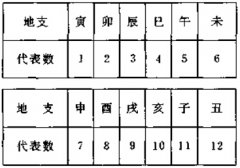 地支 寅 卯 辰 巳 午 未
代表数 1 2 3 4 5 6
地支 申 酉 戌 亥 子 丑
代表数 7 8 9 10 11 12